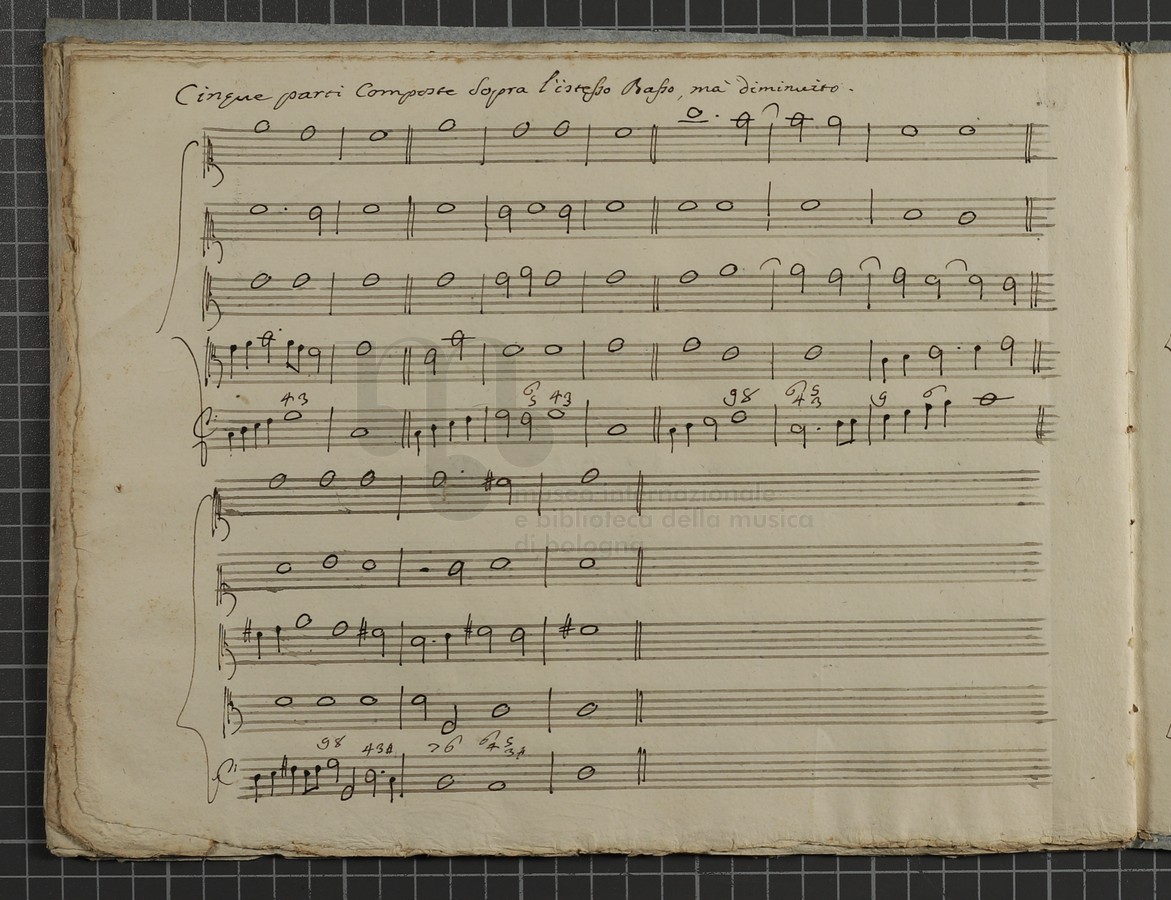 Cinque parti Composte Sopra l'istesso Basso, mà diminuito.
43
6
5
43
98
6 5
4 3
9
6
museo internazionale
e biblioteca della musica
di bologna
98
43#
76
6 5
4 3#